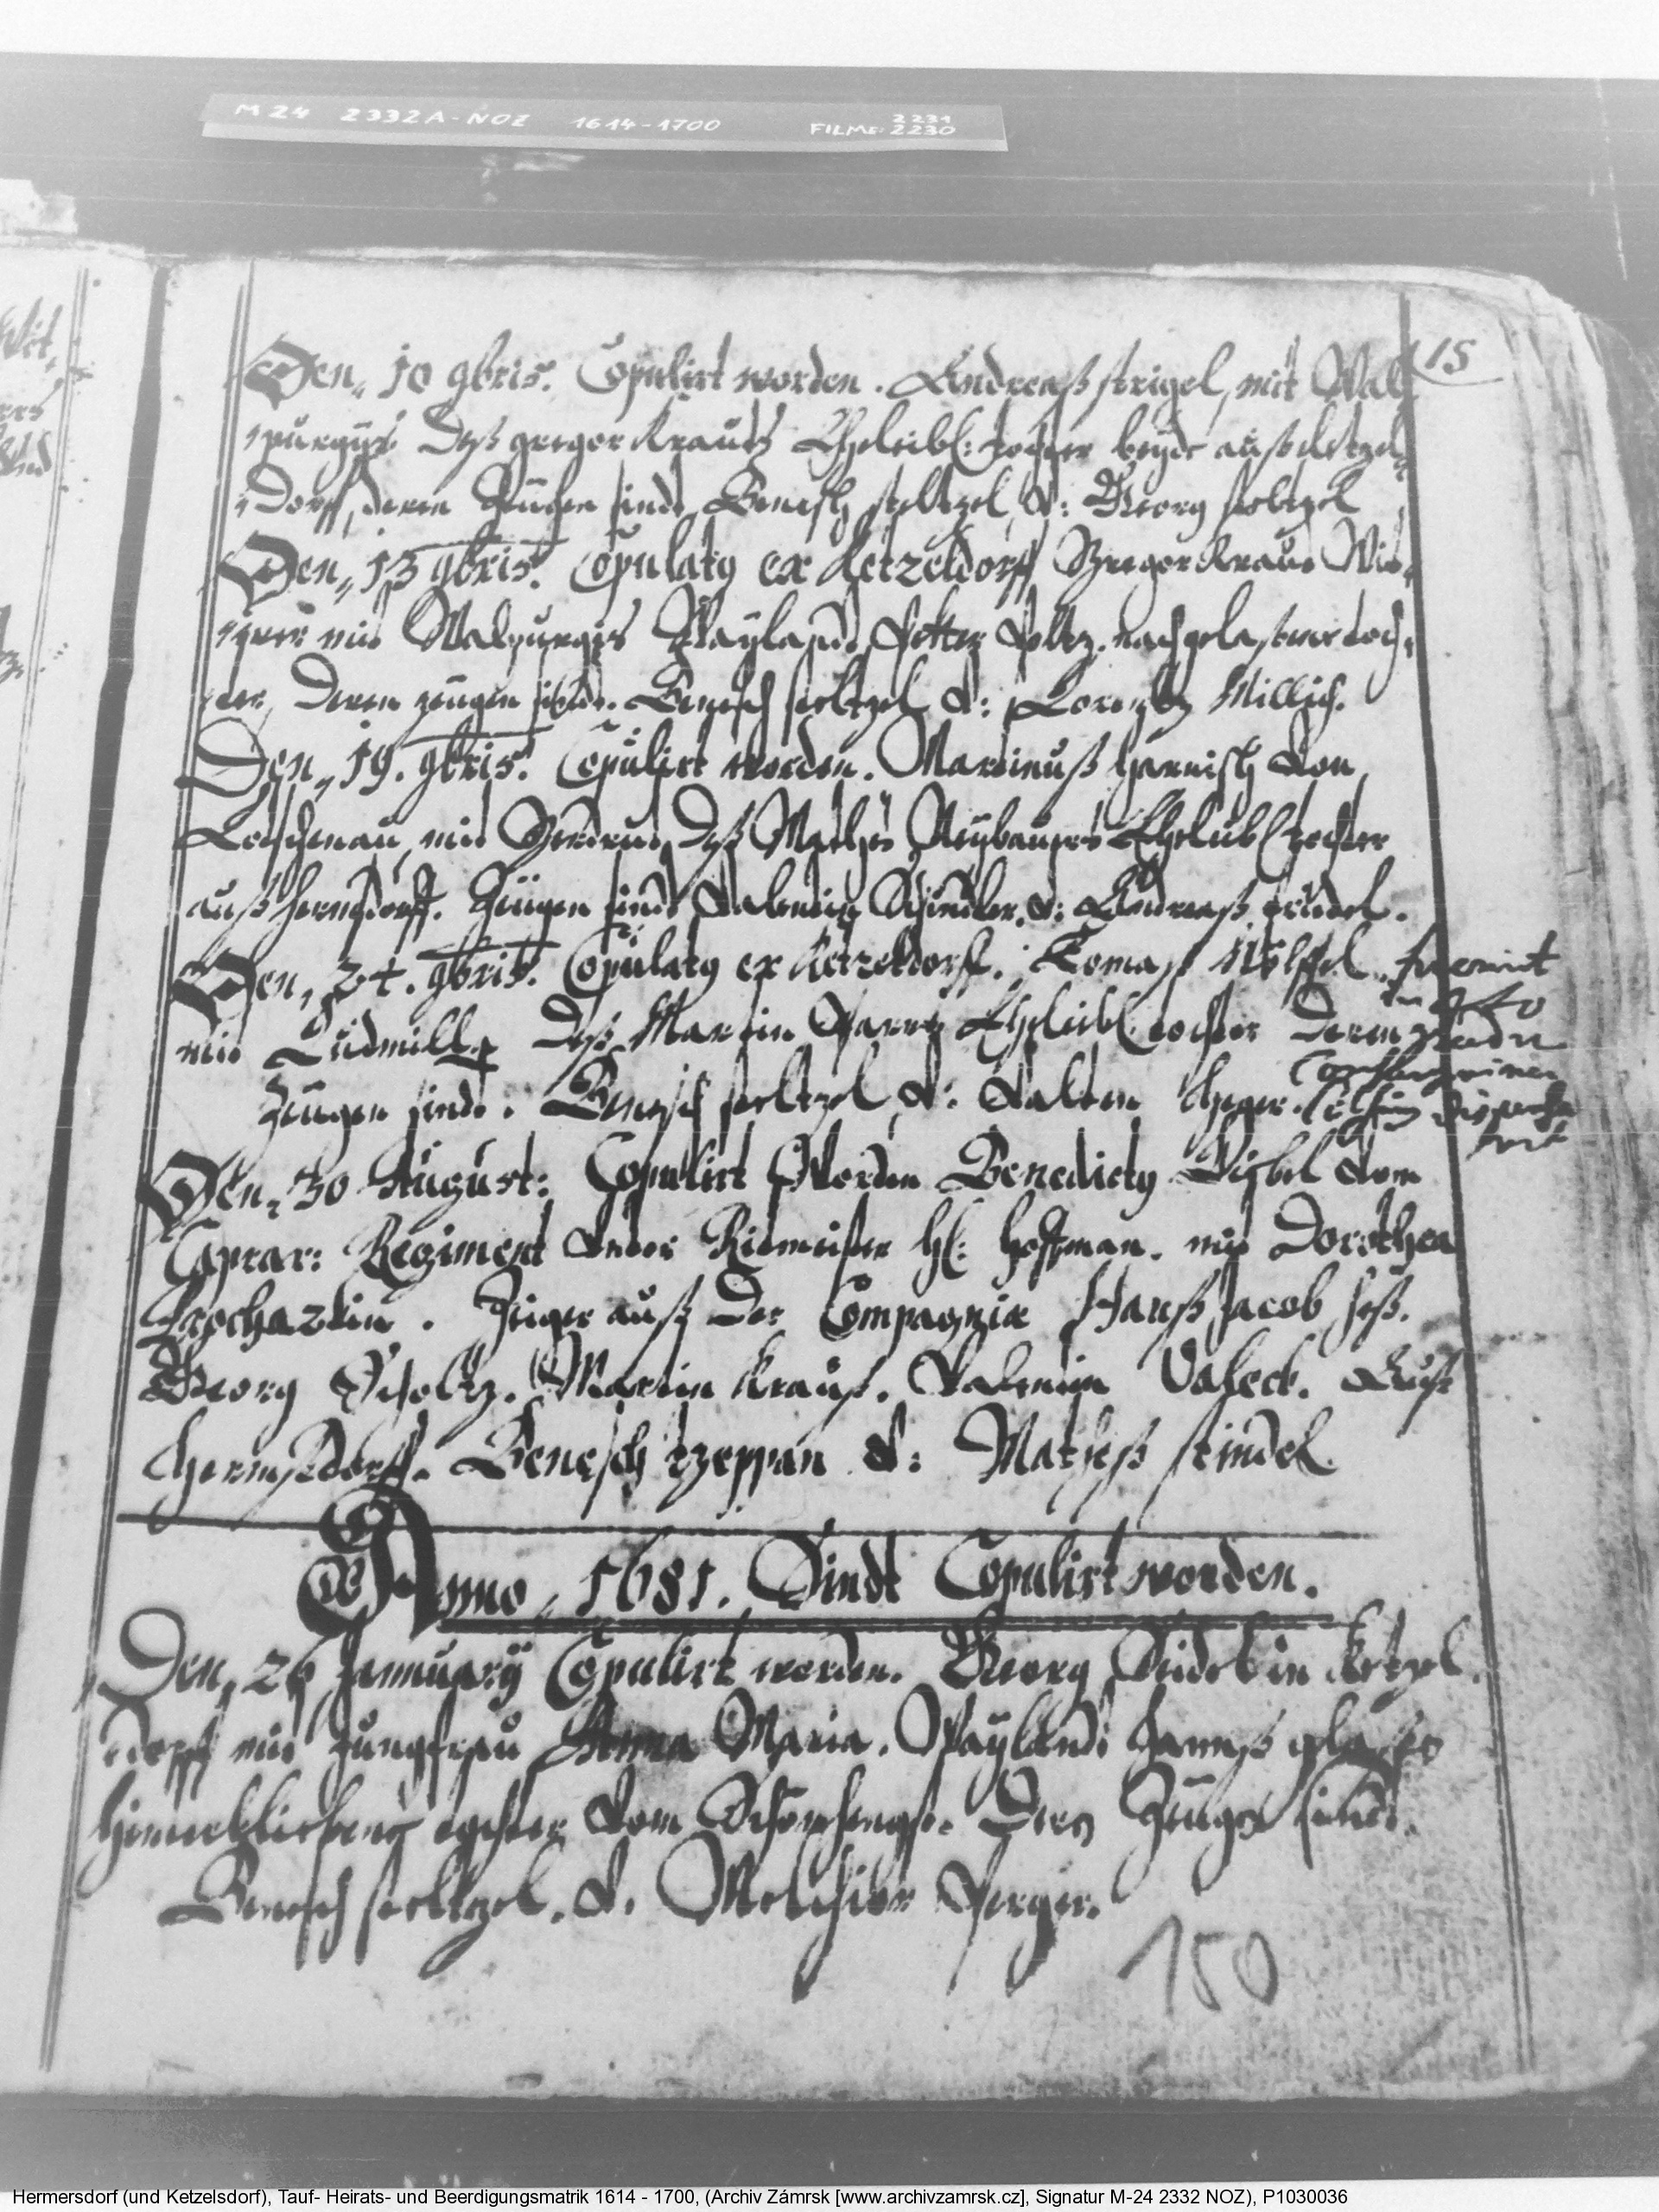 M 24 2332A-NOZ 1614-1700 FILME: 2231 2230
15
Den, 10 9bris. Copulirt worden. Andreaß strigel, mit Wal
purgis Deß gregor Krauß Eheleibl: tochter beyde auß Ketzel
Dorff, deren Zeugen sindt Benesch stoltzel, v: Georg stoltzel
Den, 13 9bris. Copulaty ex Ketzeldorff Gregor Kraus Wit
mit Walpurgis Waylandt Petter nachgelassene toch
ter, Deren zeugen sindt. Benesch stoltzel v: Lorentz Millich.
Den, 19. 9bris. Copulirt worden. Martinuß Harnisch von
Lotschenau, mit Gertrud Deß Matheß Neybauers Ehelibl tochter
auß Hermsdorff. Zeugen sindt Valentin Schindler, v: Andreaß
Den, 24. 9bris. Copulaty ex Ketzeldorff. Tomaß Wölffel
mit Ludmilla Deß Martin Eheleibl. tochter Deren
Zeugen sindt. Benesch stoltzel v: Valten Heger.
fuerunt
in 4to
gradu
Den, 30 August: Copulirt Worden Benedicty vom
Caprar: Regiment Unter Ritmeister Hl: Hoffman. mit Dorothea
Prochazkin. Zeugen auß Der Compagnia Hanß Jacob
Georg Scholtz. Martin Krauß. Valentin Vaseck. Auß
Hermsdorff. Benesch tzeppan v: Matheß stindel.
Anno, 1681. Sindt Copulirt worden.
Den, 26 January Copulirt worden. Georg in Ketzel
dorff mit Jungfrau Anna Maria. Waylandt Hanß
tochter vom Schönhengst. Zeugen sindt.
Benesch stoltzel. v. Melchior Berger.
150
Hermersdorf (und Ketzelsdorf), Tauf- Heirats- und Beerdigungsmatrik 1614 - 1700, (Archiv Zámrsk [www.archivzamrsk.cz], Signatur M-24 2332 NOZ), P1030036